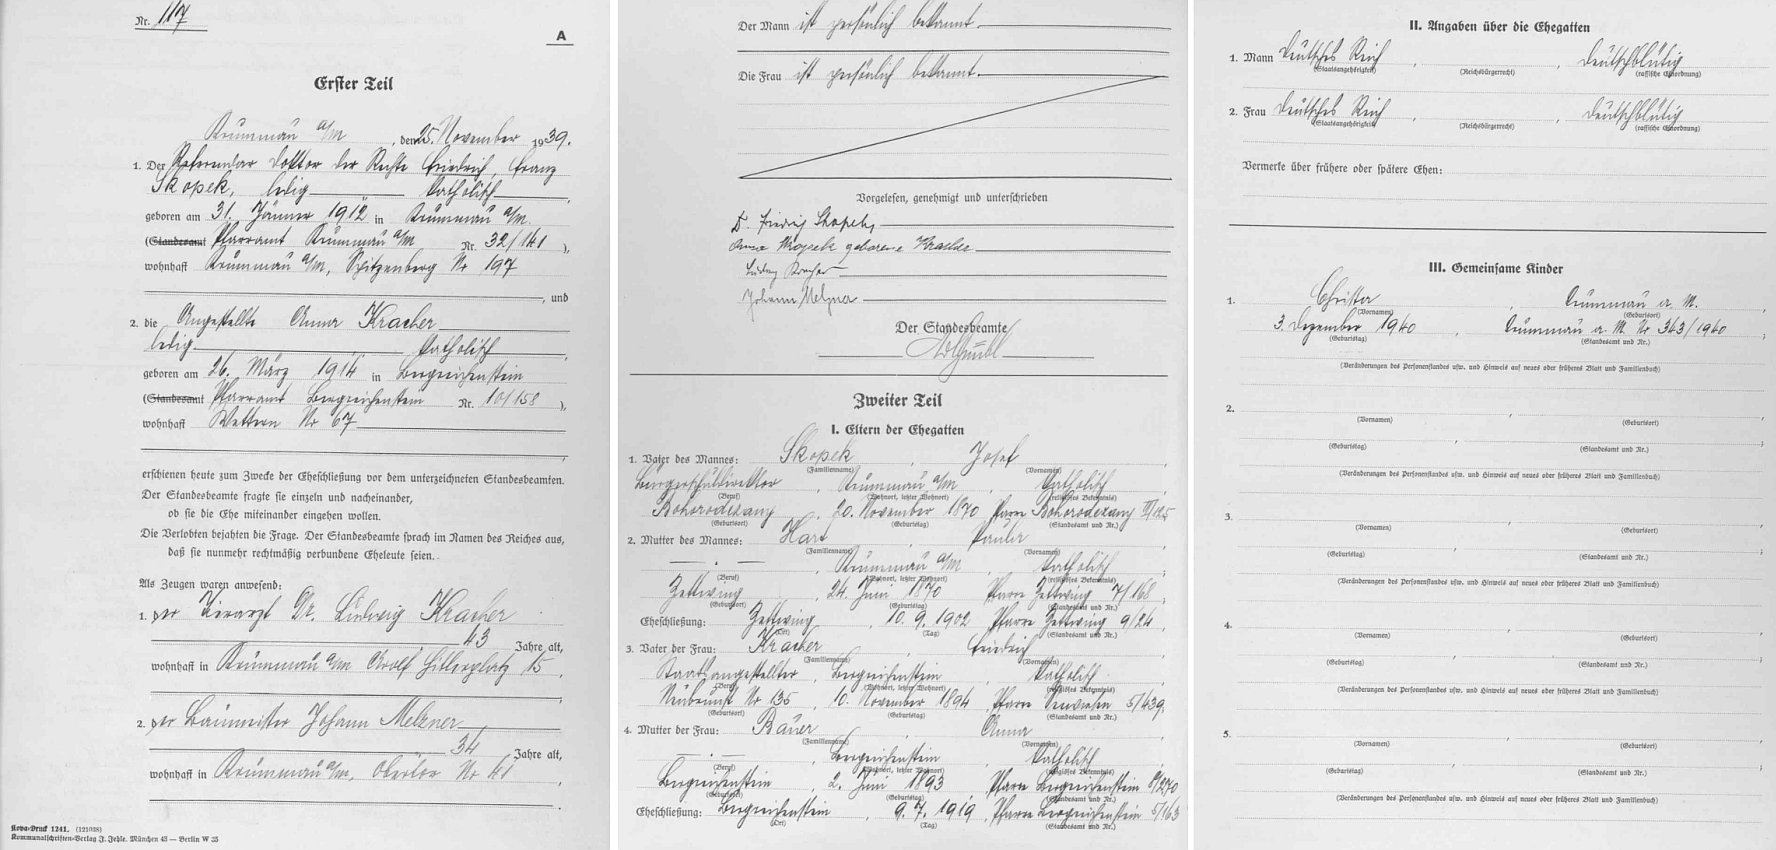 Nr. 117
A
Erster Teil
Krummau a/M , den 25. November 1939.
1. Der Referendar Doktor der Rechte Friedrich, Franz
Skopek, ledig katholisch ,
geboren am 31. Jänner 1912 in Krummau a/M.
(Standesamt Pfarramt Krummau a/M Nr. 32/141 ),
wohnhaft Krummau a/M, Spitzenberg Nr 197
, und
2. die Angestellte Anna Kracher
ledig katholisch ,
geboren am 26. März 1914 in Bergreichenstein
(Standesamt Pfarramt Bergreichenstein Nr. 10/158 ),
wohnhaft Wettern Nr 67
erschienen heute zum Zwecke der Eheschließung vor dem unterzeichneten Standesbeamten.
Der Standesbeamte fragte sie einzeln und nacheinander,
ob sie die Ehe miteinander eingehen wollen.
Die Verlobten bejahten die Frage. Der Standesbeamte sprach im Namen des Reiches aus,
daß sie nunmehr rechtmäßig verbundene Eheleute seien.
Als Zeugen waren anwesend:
1. der Tierarzt Dr. Ludwig Kracher
43 Jahre alt,
wohnhaft in Krummau a/M Adolf Hitlerplatz 15 ,
2. der Baumeister Johann Melzner
34 Jahre alt,
wohnhaft in Krummau a/M, Obertor Nr 41 ,
Kova-Druck 1241. (121038)
Kommunalschriften-Verlag J. Jehle. München 43 — Berlin W 35
Der Mann ist persönlich bekannt.
Die Frau ist persönlich bekannt.
Vorgelesen, genehmigt und unterschrieben
Dr. Friedrich Skopek,
Anna Skopek geborene Kracher
Ludwig Kracher
Johann Melzner
Der Standesbeamte
Zweiter Teil
I. Eltern der Ehegatten
1. Vater des Mannes: Skopek , Josef ,
(Familienname) (Vornamen)
Bürgerschuldirektor , Krummau a/M , katholisch
(Beruf) (Wohnort, letzter Wohnort) (religiöses Bekenntnis)
Bohorodczany , 20. November 1870 Pfarre Bohorodczany II/125
(Geburtsort) (Geburtstag) (Standesamt und Nr.)
2. Mutter des Mannes: , Paula ,
(Familienname) (Vornamen)
— . — Krummau a/M katholisch
(Beruf) (Wohnort, letzter Wohnort) (religiöses Bekenntnis)
Zettwing , 24. Juni 1870 Pfarre Zettwing 7/168 ;
(Geburtsort) (Geburtstag) (Standesamt und Nr.)
Eheschließung: Zettwing , 10. 9. 1902 Pfarre Zettwing 9/24 .
(Ort) (Tag) (Standesamt und Nr.)
3. Vater der Frau: Kracher , Friedrich ,
(Familienname) (Vornamen)
Staatsangestellter , Bergreichenstein , katholisch
(Beruf) (Wohnort, letzter Wohnort) (religiöses Bekenntnis)
Neubrunst Nr 135 , 10. November 1894 , Pfarre Seewiesen 5/439.
(Geburtsort) (Geburtstag) (Standesamt und Nr.)
4. Mutter der Frau: Bauer , Anna ,
(Familienname) (Vornamen)
— . — Bergreichenstein katholisch
(Beruf) (Wohnort, letzter Wohnort) (religiöses Bekenntnis)
Bergreichenstein , 2. Juni 1893 , Pfarre Bergreichenstein
(Geburtsort) (Geburtstag) (Standesamt und Nr.)
Eheschließung: Bergreichenstein , 9. 7. 1919 , Pfarre Bergreichenstein 5/163
(Ort) (Tag) (Standesamt und Nr.)
II. Angaben über die Ehegatten
1. Mann Deutsches Reich , , deutschblütig
(Staatsangehörigkeit) (Reichsbürgerrecht) (rassische Einordnung)
2. Frau Deutsches Reich , , deutschblütig
(Staatsangehörigkeit) (Reichsbürgerrecht) (rassische Einordnung)
Vermerke über frühere oder spätere Ehen:
III. Gemeinsame Kinder
1. Christa , Krummau a. M.
(Vornamen) (Geburtsort)
3. Dezember 1940 , Krummau a. M. Nr 343/1940 ;
(Geburtstag) (Standesamt und Nr.)
(Veränderungen des Personenstandes usw. und Hinweis auf neues oder früheres Blatt und Familienbuch)
2. ,
(Vornamen) (Geburtsort)
, ;
(Geburtstag) (Standesamt und Nr.)
(Veränderungen des Personenstandes usw. und Hinweis auf neues oder früheres Blatt und Familienbuch)
3. ,
(Vornamen) (Geburtsort)
, ;
(Geburtstag) (Standesamt und Nr.)
(Veränderungen des Personenstandes usw. und Hinweis auf neues oder früheres Blatt und Familienbuch)
4. ,
(Vornamen) (Geburtsort)
, ;
(Geburtstag) (Standesamt und Nr.)
(Veränderungen des Personenstandes usw. und Hinweis auf neues oder früheres Blatt und Familienbuch)
5. ,
(Vornamen) (Geburtsort)
, ;
(Geburtstag) (Standesamt und Nr.)
(Veränderungen des Personenstandes usw. und Hinweis auf neues oder früheres Blatt und Familienbuch)